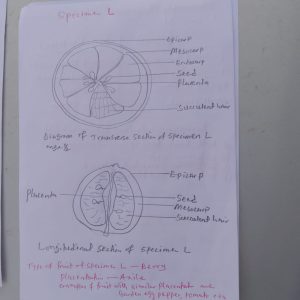 Specimen L
Epicarp
Mesocarp
Endocarp
Seed
Placenta
Succulent hair
Diagram of Transverse section of specimen L
Epicarp
Placenta
Seed
Mesocarp
Succulent hair
Longitudinal section of specimen L
Type of fruit of specimen L — Berry
Placentation — Axile
of fruit with similar placentation are
Garden egg, pepper, tomato